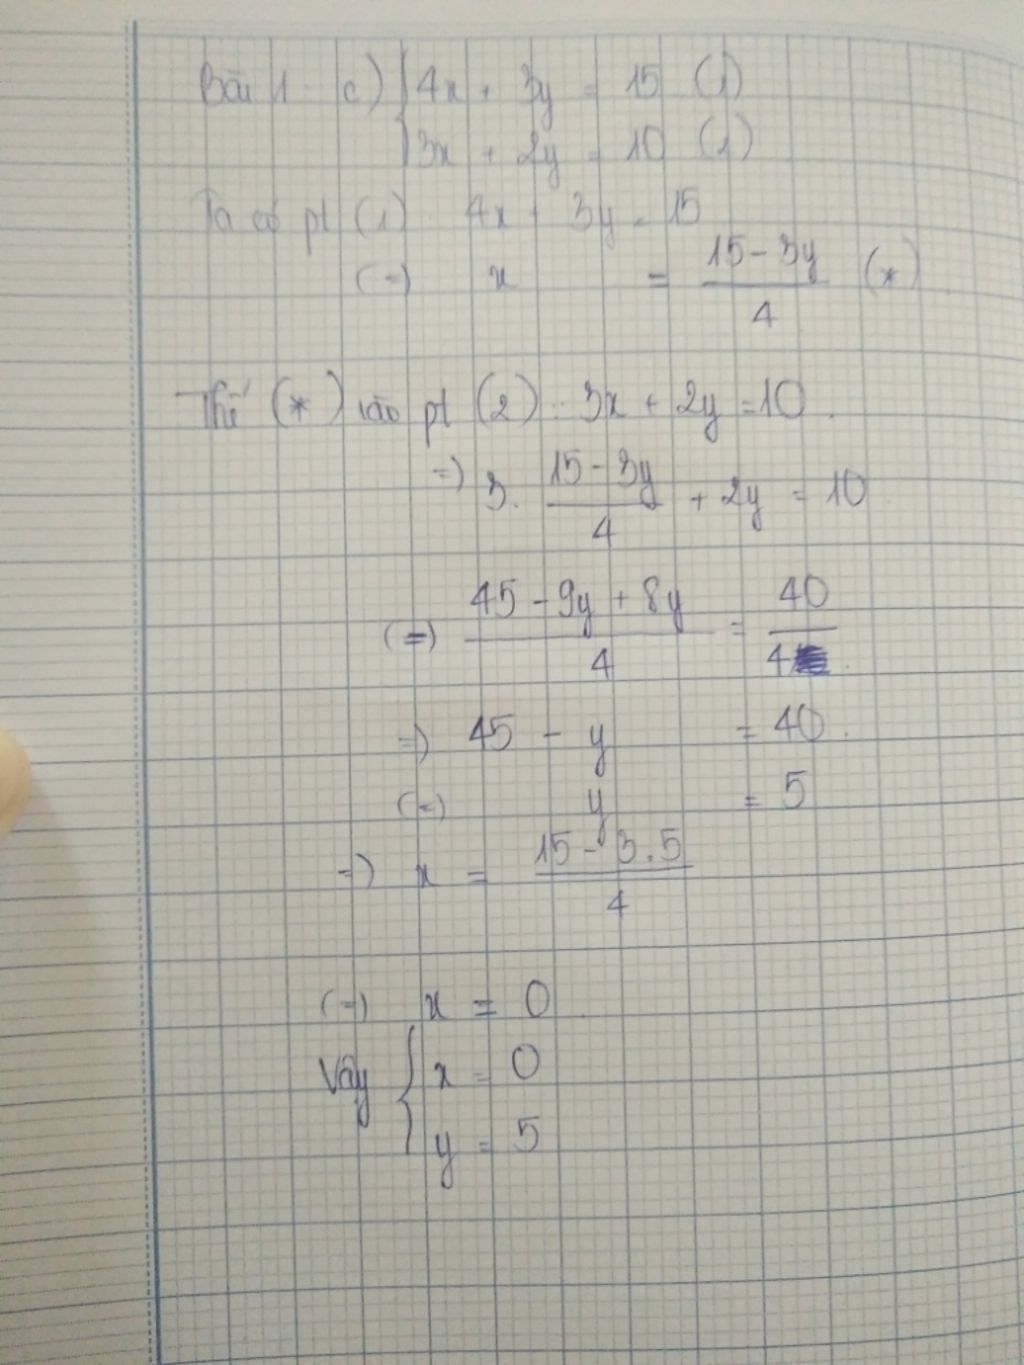 Bài 1 c) { 4x + 3y = 15 (1)
3x + 2y = 10 (1)
Ta có pt (1) 4x + 3y = 15
(=) x = (15 - 3y)/4 (*)
Thế (*) vào pt (2) : 3x + 2y = 10.
=) 3. (15 - 3y)/4 + 2y = 10
(=) (45 - 9y + 8y)/4 = 40/4.
=) 45 - y = 40.
(=) y = 5
=) x = (15 - 3.5)/4
(=) x = 0.
Vậy { x = 0
y = 5